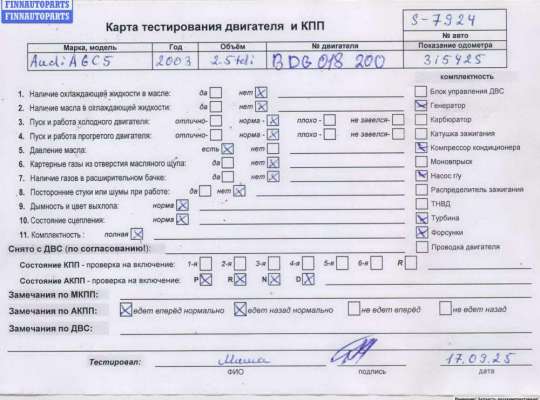 FINNAUTOPARTS
FINNAUTOPARTS
Карта тестирования двигателя и КПП
S-7924
№ авто
Марка, модель Год Объём № двигателя Показание одометра
Audi A6C5 2003 2.5 tdi BDG 018 200 315425
комплектность
1. Наличие охлаждающей жидкости в масле: да нет
Блок управления ДВС
2. Наличие масла в охлаждающей жидкости: да нет
Генератор
3. Пуск и работа холодного двигателя: отлично- норма - плохо - не завелся-
Карбюратор
4. Пуск и работа прогретого двигателя: отлично- норма - плохо - не завелся-
Катушка зажигания
5. Давление масла: есть нет
Компрессор кондиционера
6. Картерные газы из отверстия масляного щупа: да нет
Моновпрыск
7. Наличие газов в расширительном бачке: да нет
Насос г/у
8. Посторонние стуки или шумы при работе: да нет
Распределитель зажигания
9. Дымность и цвет выхлопа: норма
ТНВД
10. Состояние сцепления: норма
Турбина
11. Комплектность : полная
Форсунки
Снято с ДВС (по согласованию!):
Проводка двигателя
Состояние КПП - проверка на включение: 1-я 2-я 3-я 4-я 5-я 6-я R
Состояние АКПП - проверка на включение: P R N D
Замечания по МКПП:
Замечания по АКПП: едет вперёд нормально едет назад нормально не едет вперёд не едет назад
Замечания по ДВС:
Тестировал: Миша 17.09.25
ФИО подпись дата